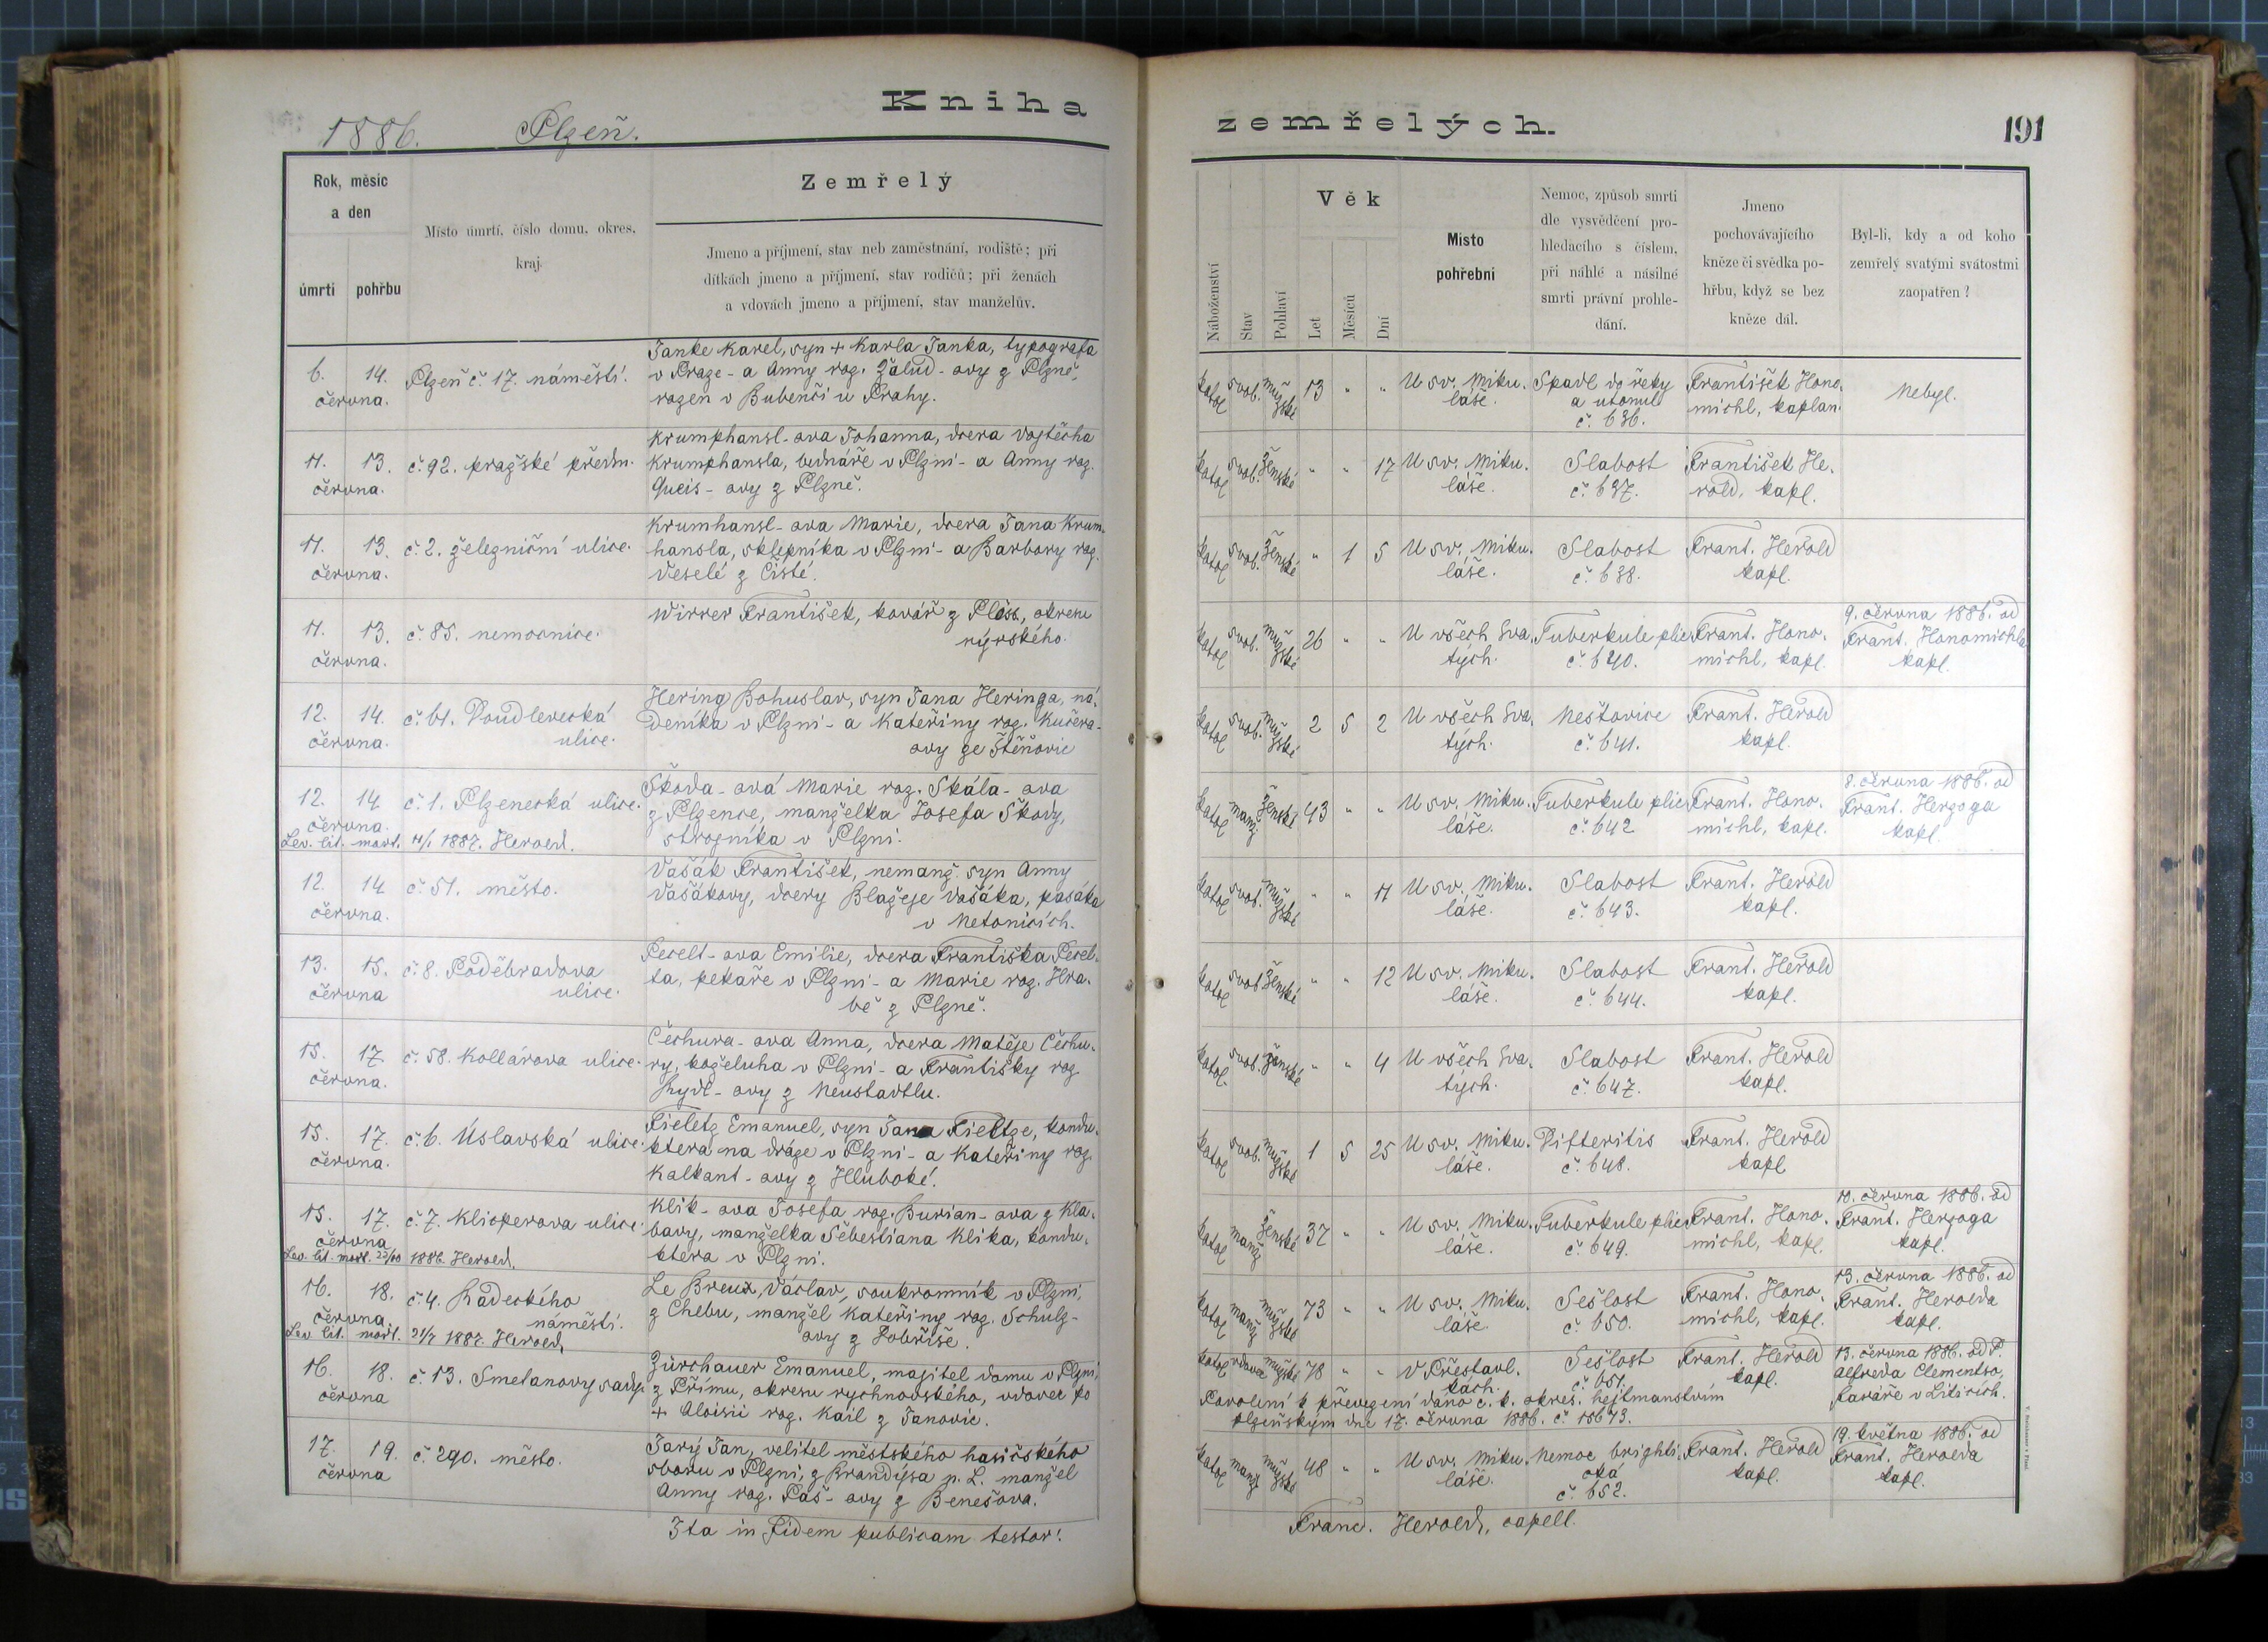 Kniha
1886. Plzeň.
Rok, měsíc
a den
úmrtí
pohřbu
Místo úmrtí, číslo domu, okres,
kraj.
Zemřelý
Jmeno a příjmení, stav neb zaměstnání, rodiště; při
dítkách jmeno a příjmení, stav rodičů; při ženách
a vdovách jmeno a příjmení, stav manželův.
6. 14. Plzeň č. 17. náměstí.
června.
Janke Karel, syn + Karla Janka, typografa
v Praze - a Anny roz. Žalud-ovy z Plzně,
rozen v Bubenči u Prahy.
11. 13. č. 92. pražské předm.
června.
Krumphansl-ova Johanna, dcera Vojtěcha
Krumphansla, bednáře v Plzni - a Anny roz.
Queis-ovy z Plzně.
11. 13. č. 2. železniční ulice.
června.
Krumhansl-ova Marie, dcera Jana Krum-
hansla, sklepníka v Plzni - a Barbory roz.
Veselé z Čisté.
11. 13. č. 85. nemocnice.
června.
Wirrer František, kovář z Plöss, okresu
nýrského.
12. 14. č. 61. Doudlevecká
června. ulice.
Hering Bohuslav, syn Jana Heringa, ná-
deníka v Plzni - a Kateřiny roz. Kučera-
ovy ze Štěňovic
12. 14 č. 1. Plzenecká ulice.
června.
Lev. lit. mort. 4/1 1887. Herold.
Škoda-ová Marie roz. Skála-ova
z Plzence, manželka Josefa Škody,
strojníka v Plzni.
12. 14 č. 51. město.
června.
Vašák František, nemanž. syn Anny
Vašákovy, dcery Blažeje Vašáka, pasáka
v Netonicích.
13. 15. č. 8. Poděbradova
června ulice.
Pecelt-ova Emilie, dcera Františka Pecel-
ta, pekaře v Plzni - a Marie roz. Hra-
bě z Plzně.
15. 17. č. 58. Kollárova ulice.
června.
Čechura-ova Anna, dcera Matěje Čechu-
ry, koželuha v Plzni - a Františky roz.
Hydl-ovy z Neustadtlu.
15. 17. č. 6. Úslavská ulice.
června.
Fieletz Emanuel, syn Jana Fieltze, kondu-
ktera na dráze v Plzni - a Kateřiny roz.
Kalkant-ovy z Hluboké.
15. 17. č. 7. Klicperova ulice.
června
Lev. lit. mort. 22/10 1886. Herold.
Klik-ova Josefa roz. Burian-ova z Kla-
bavy, manželka Šebestiana Klika, kondu-
ktera v Plzni.
16. 18. č. 4. Radeckého
června náměstí.
Lev lit. mort. 21/7 1887. Herold.
Le Breux Václav, soukromník v Plzni,
z Chebu, manžel Kateřiny roz. Schulz-
ovy z Dobříše.
16. 18. č. 13. Smetanovy sady.
června
Zürchauer Emanuel, majitel domu v Plzni,
z Přímu, okresu rychnovského, vdovec po
+ Aloisii roz. Kail z Janovic.
17. 19. č. 290. město.
června
Jarý Jan, velitel městského hasičského
sboru v Plzni, z Brandýsa n. L. manžel
Anny roz. Paš-ovy z Benešova.
Ita in fidem publicam testor!
zemřelých.
191
Náboženství
Stav
Pohlaví
Věk
Let
Měsíců
Dní
Místo
pohřební
Nemoc, způsob smrti
dle vysvědčení pro-
hledacího s číslem,
při náhlé a násilné
smrti právní prohle-
dání.
Jmeno
pochovávajícího
kněze či svědka po-
hřbu, když se bez
kněze dál.
Byl-li, kdy a od koho
zemřelý svatými svátostmi
zaopatřen?
katol svob. mužské 13 " " U sv. Miku- Spadl do řeky František Hono-
láše. a utonul michl, kaplan. Nebyl.
č. 636.
katol svob. ženské " " 17 U sv. Miku- Slabost František He-
láše. č. 637. rold, kapl.
katol svob. ženské " 1 5 U sv. Miku- Slabost Frant. Herold
láše. č. 638. kapl.
katol svob. mužské 26 " " U všech Sva- Tuberkule plic Frant. Hono- 9. června 1886. od
tých. č. 640. michl, kapl. Frant. Honomichla
kapl.
katol svob. mužské 2 5 2 U všech Sva- Neštovice Frant. Herold
tých. č. 641. kapl.
katol manž ženské 43 " " U sv. Miku- Tuberkule plic Frant. Hono- 8. června 1886. od
láše. č. 642 michl, kapl. Frant. Herzoga
kapl.
katol svob. mužské " " 11 U sv. Miku- Slabost Frant. Herold
láše. č. 643. kapl.
katol svob. ženské " " 12 U sv. Miku- Slabost Frant. Herold
láše. č. 644. kapl.
katol. svob. ženské " " 4 U všech Sva- Slabost Frant. Herold
tých. č. 647. kapl.
katol svob. mužské 1 5 25 U sv. Miku- Difteritis Frant. Herold
láše. č. 648. kapl
katol manž ženské 37 " " U sv. Miku- Tuberkule plic Frant. Hono- 10. června 1886. od
láše. č. 649. michl, kapl. Frant. Herzoga
kapl.
katol manž mužské 73 " " U sv. Miku- Sešlost Frant. Hono- 13. června 1886. od
láše. č. 650. michl, kapl. Frant. Herolda
kapl.
katol vdovec mužské 78 " " V Přestavl- Sešlost Frant. Herold 13. června 1886. od P.
kách. č. 651. kapl. Alfreda Clementso,
Povolení k převezení dáno c. k. okres. hejtmanstvím faráře v Liticích.
plzeňským dne 17. června 1886. č. 15673.
katol manž mužské 48 " " U sv. Miku- Nemoc brighti- Frant. Herold 19. května 1886. od
láše. cká kapl. Frant. Herolda
č. 652. kapl.
Franc. Herold, capell.